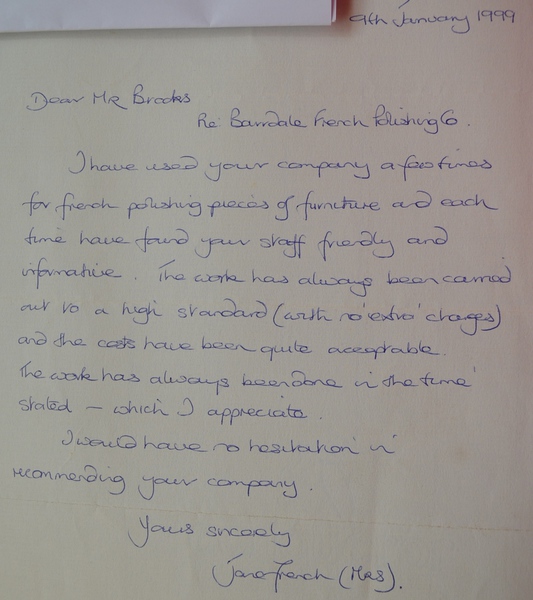 9th January 1999
Dear Mr Brooks
Re: Barrdale French Polishing Co.
I have used your company a few times
for french polishing pieces of furniture and each
time have found your staff friendly and
informative. The work has always been carried
out to a high standard (with no 'extra' charges)
and the costs have been quite acceptable.
The work has always been done in the time
stated – which I appreciate.
I would have no hesitation in
recommending your company.
Yours sincerely
Jane French (Mrs).